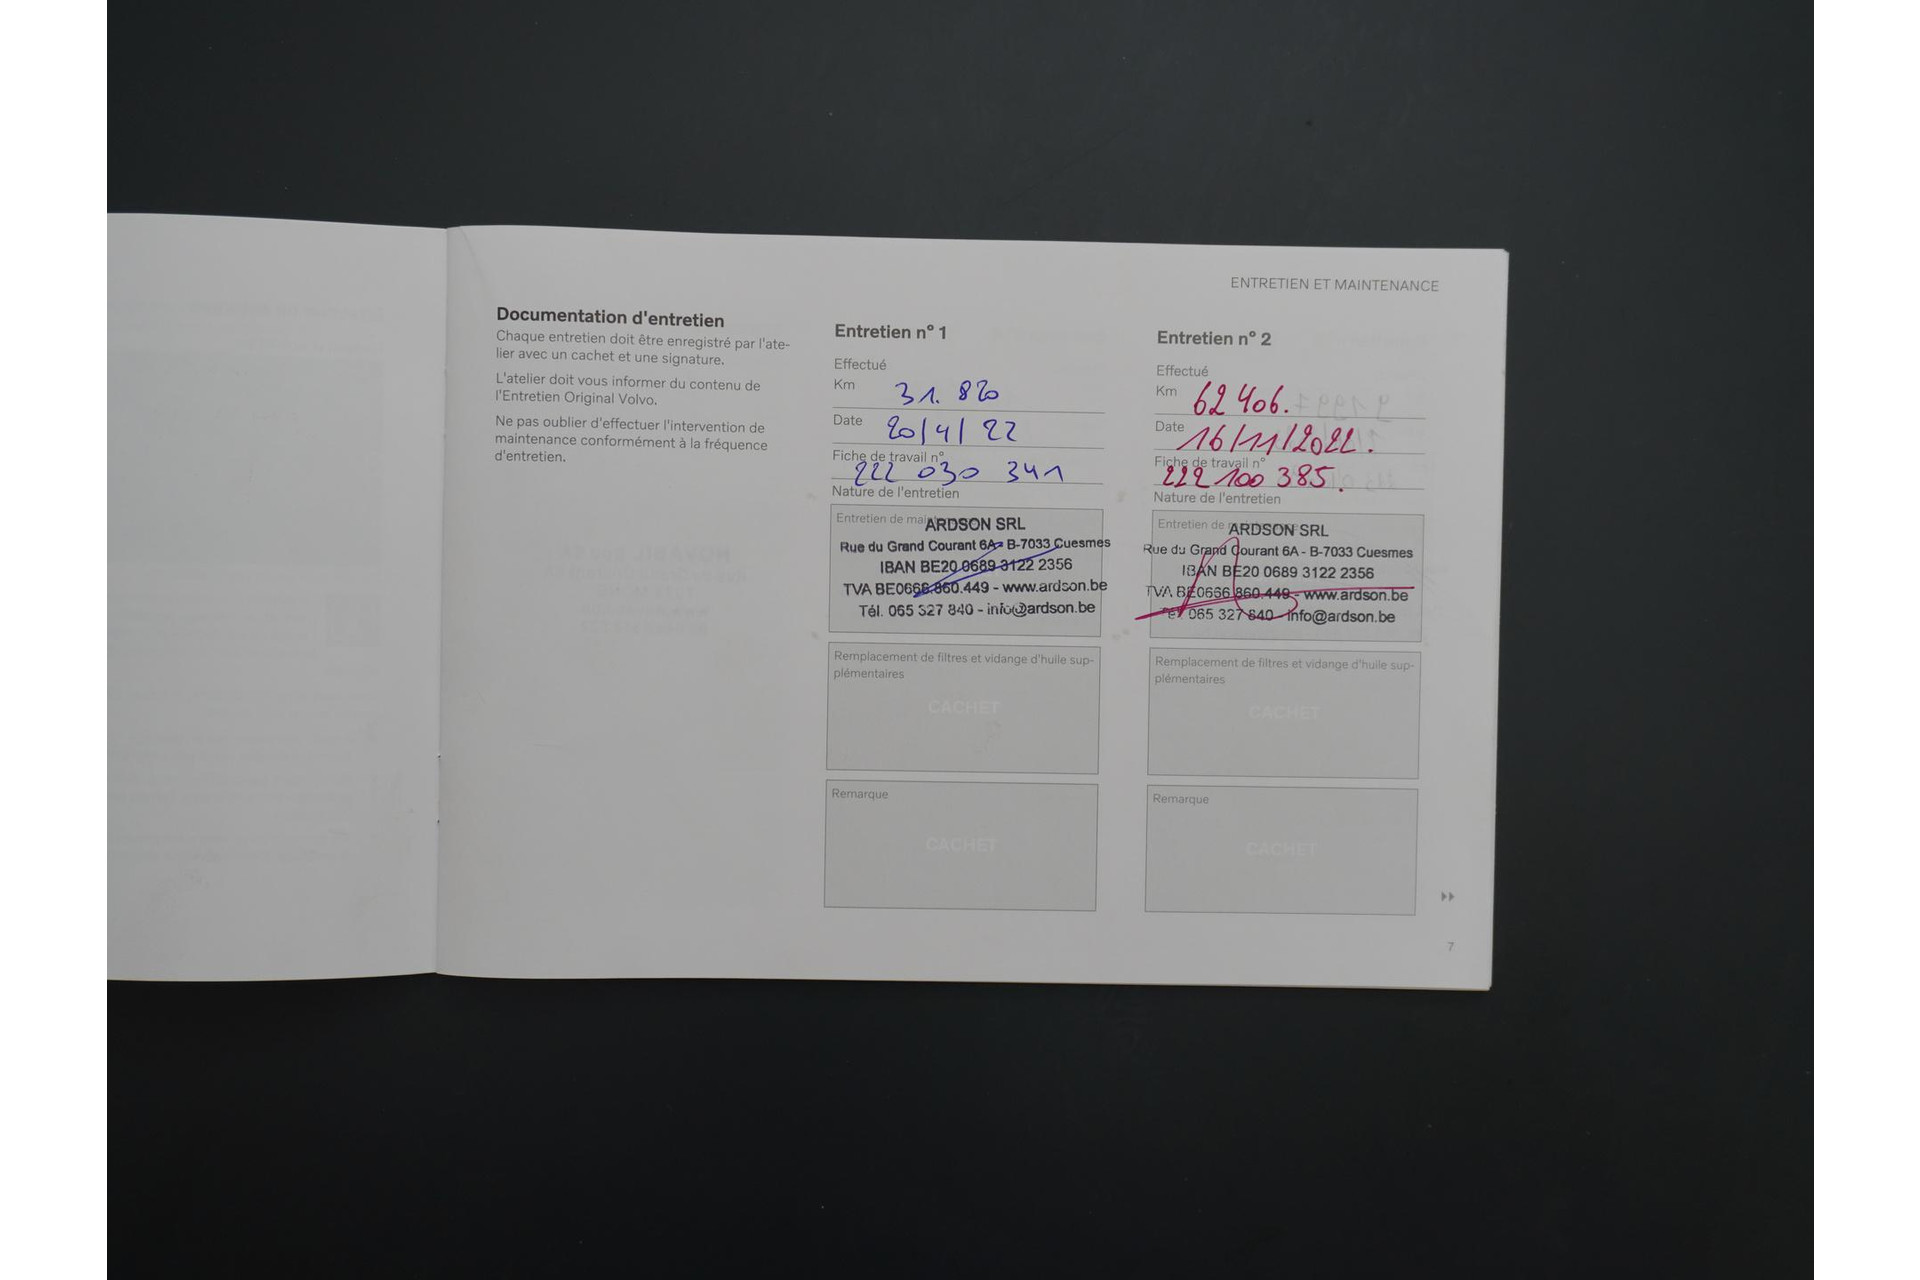 ENTRETIEN ET MAINTENANCE
Documentation d'entretien
Chaque entretien doit être enregistré par l'ate-
lier avec un cachet et une signature.
L'atelier doit vous informer du contenu de
l'Entretien Original Volvo.
Ne pas oublier d'effectuer l'intervention de
maintenance conformément à la fréquence
d'entretien.
Entretien n° 1
Effectué
Km 31.820
Date 20/4/22
Fiche de travail n°
222 030 341
Nature de l'entretien
Entretien de
ARDSON SRL
Rue du Grand Courant 6A - B-7033 Cuesmes
IBAN BE20 0689 3122 2356
TVA BE0666.860.449 - www.ardson.be
Tél. 065 327 840 - info@ardson.be
Remplacement de filtres et vidange d'huile sup-
plémentaires
CACHET
Remarque
CACHET
Entretien n° 2
Effectué
Km 62 406.
Date 16/11/2022.
Fiche de travail n°
222 100 385.
Nature de l'entretien
Entretien de
ARDSON SRL
Rue du Grand Courant 6A - B-7033 Cuesmes
IBAN BE20 0689 3122 2356
TVA BE0666.860.449 - www.ardson.be
Tél. 065 327 840 - info@ardson.be
Remplacement de filtres et vidange d'huile sup-
plémentaires
CACHET
Remarque
CACHET
7